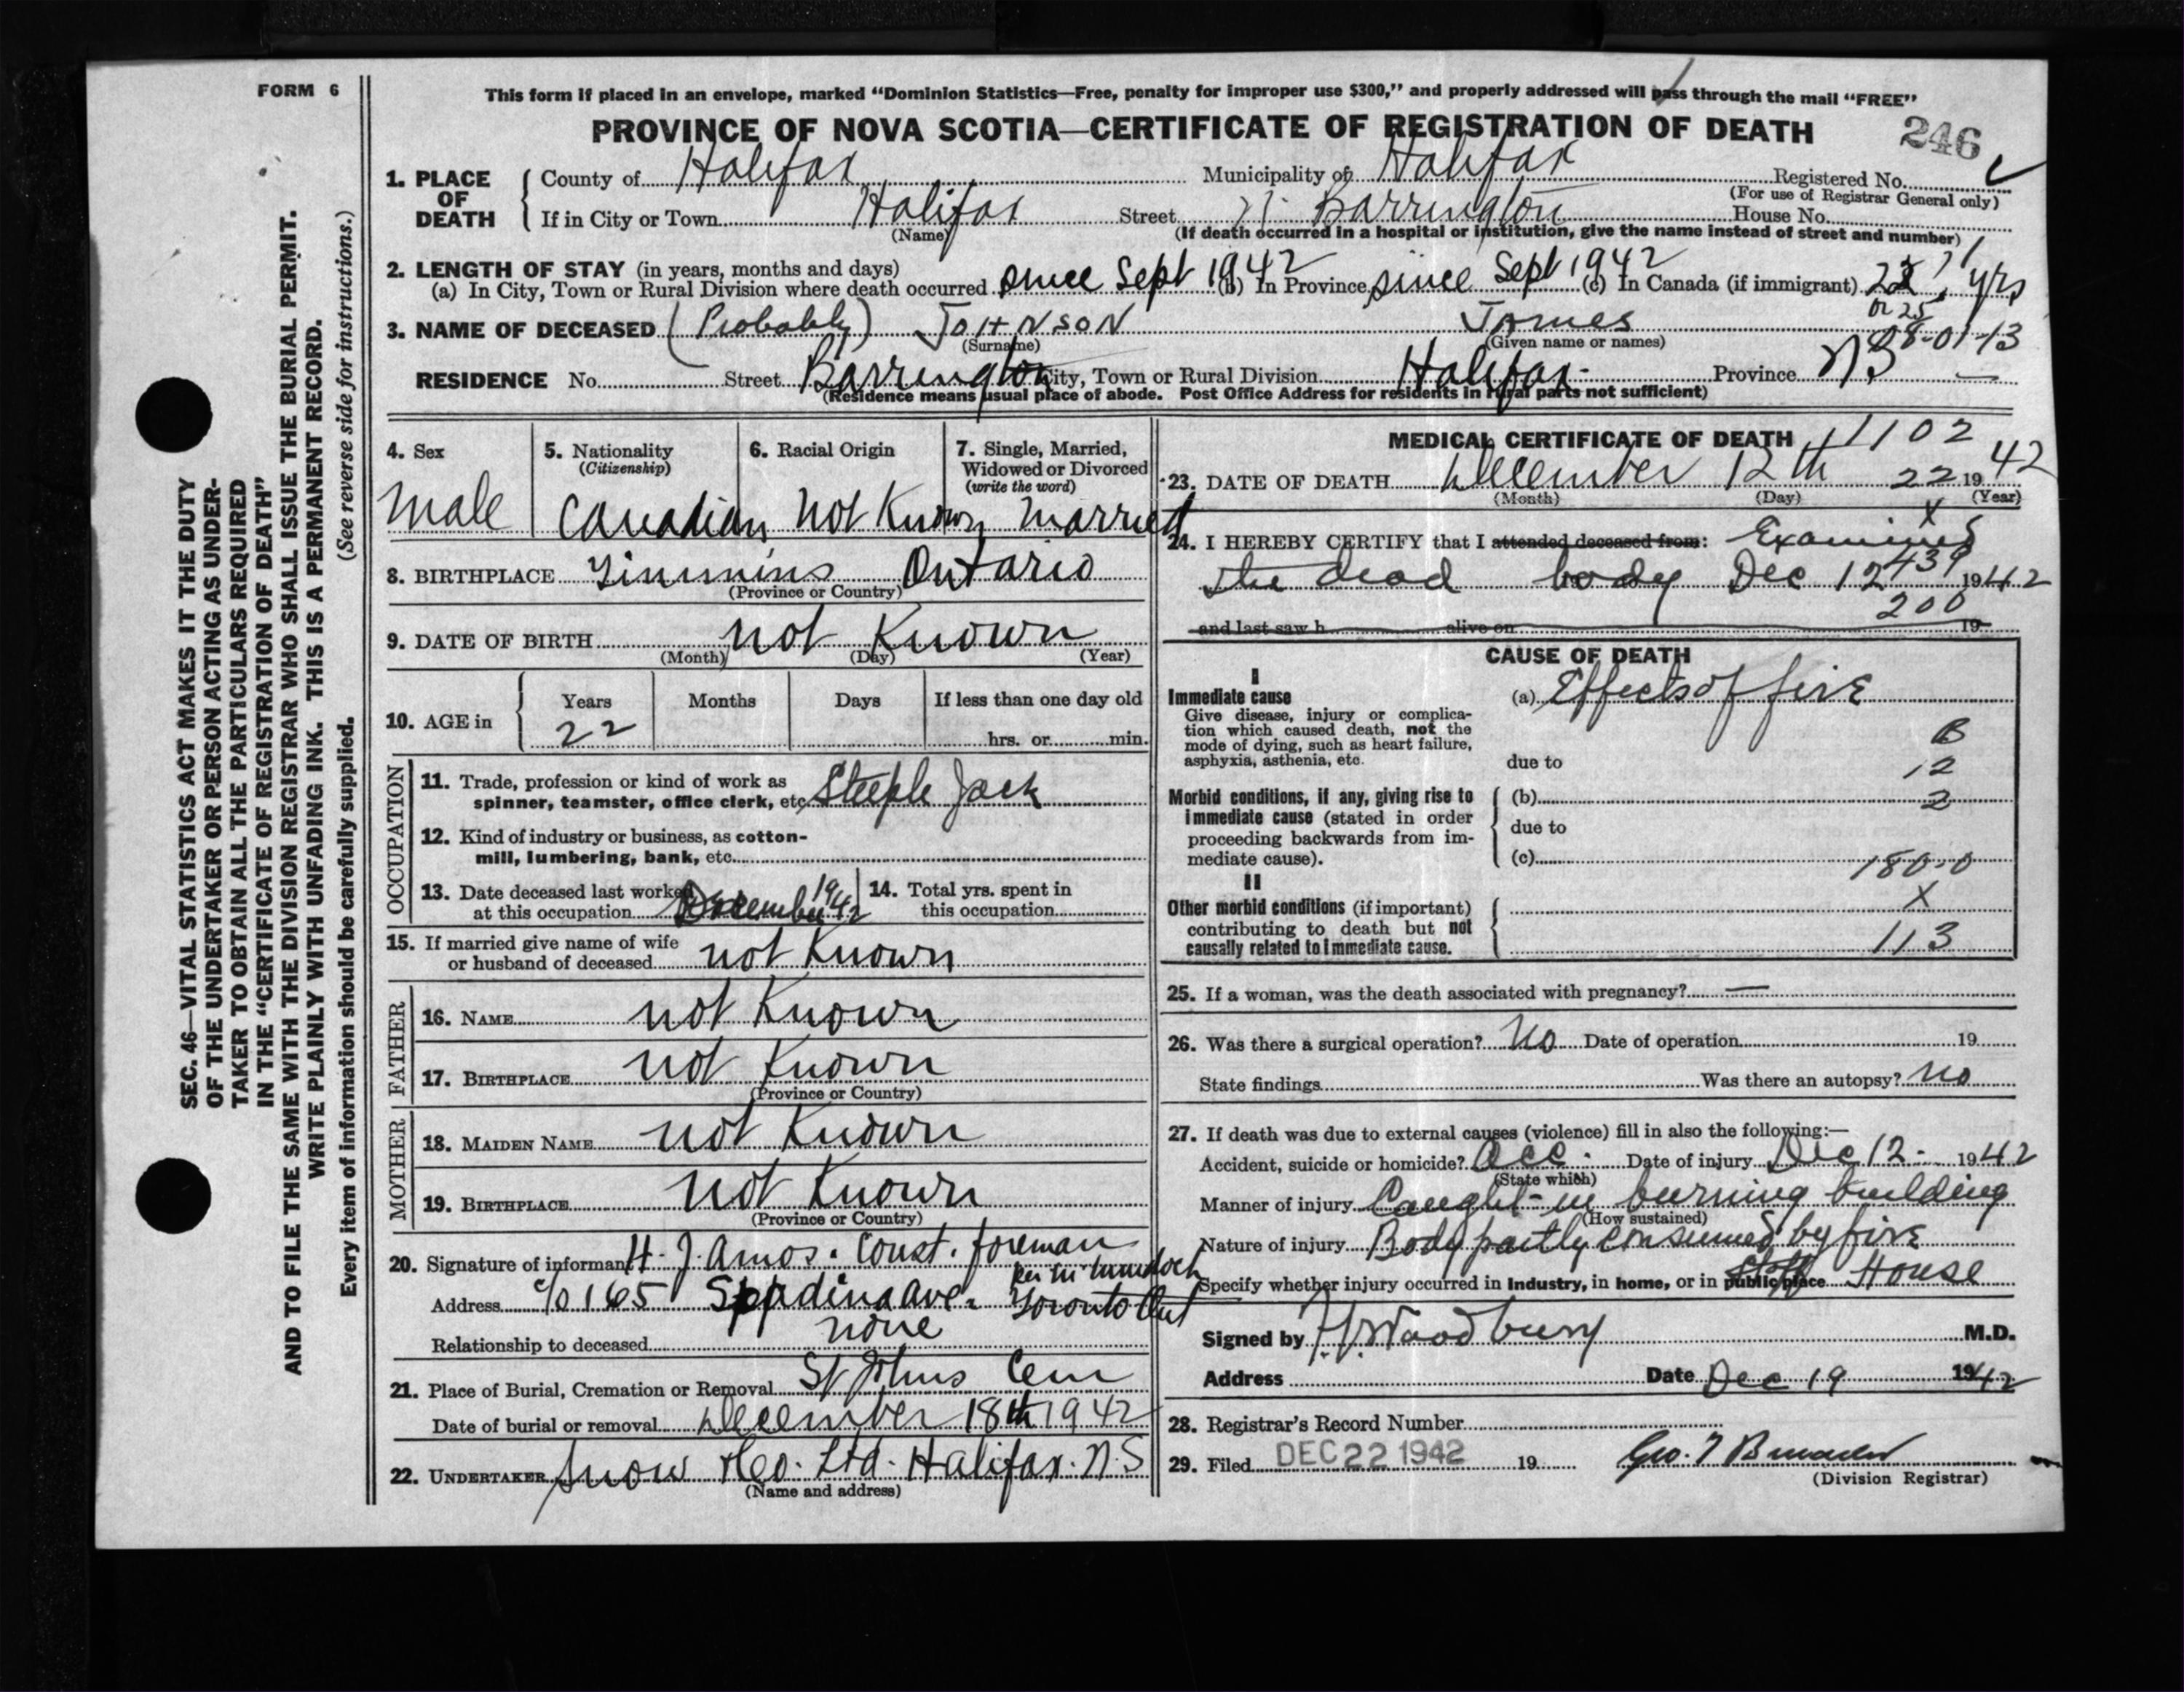 FORM 6
This form if placed in an envelope, marked “Dominion Statistics—Free, penalty for improper use $300,” and properly addressed will pass through the mail “FREE”
PROVINCE OF NOVA SCOTIA—CERTIFICATE OF REGISTRATION OF DEATH
246
1. PLACE OF DEATH
County of Halifax Municipality of Halifax Registered No.
(For use of Registrar General only)
If in City or Town Halifax Street N. Barrington House No.
(Name) (If death occurred in a hospital or institution, give the name instead of street and number)
2. LENGTH OF STAY (in years, months and days)
(a) In City, Town or Rural Division where death occurred since Sept 1942 (b) In Province since Sept 1942 (c) In Canada (if immigrant) 22 yrs
or 25
3. NAME OF DECEASED (Probably) JOHNSON James
(Surname) (Given name or names)
08-01-13
RESIDENCE No. Street Barrington City, Town or Rural Division Halifax Province NS
(Residence means usual place of abode. Post Office Address for residents in rural parts not sufficient)
4. Sex
Male
5. Nationality
(Citizenship)
Canadian
6. Racial Origin
Not Known
7. Single, Married,
Widowed or Divorced
(write the word)
Married
8. BIRTHPLACE Timmins Ontario
(Province or Country)
9. DATE OF BIRTH not Known
(Month) (Day) (Year)
10. AGE in
Years Months Days If less than one day old
22 hrs. or min.
OCCUPATION
11. Trade, profession or kind of work as
spinner, teamster, office clerk, etc. Steeple Jack
12. Kind of industry or business, as cotton-
mill, lumbering, bank, etc.
13. Date deceased last worked
at this occupation December 1942
14. Total yrs. spent in
this occupation
15. If married give name of wife
or husband of deceased not Known
FATHER
16. NAME not Known
17. BIRTHPLACE not Known
(Province or Country)
MOTHER
18. MAIDEN NAME not Known
19. BIRTHPLACE not Known
(Province or Country)
20. Signature of informant H. J. Amos. Const. foreman
Address c/o 165 Spadina Ave. Toronto Ont
Relationship to deceased none
21. Place of Burial, Cremation or Removal St Johns Cem
Date of burial or removal December 18th 1942
22. UNDERTAKER Snow & Co. Ltd. Halifax. N.S
(Name and address)
MEDICAL CERTIFICATE OF DEATH 1102
23. DATE OF DEATH December 12th 22 1942
(Month) (Day) (Year)
X
24. I HEREBY CERTIFY that I attended deceased from: Examined
the dead body Dec 12 1942
439
200
and last saw h alive on 19
CAUSE OF DEATH
I
Immediate cause
Give disease, injury or complica-
tion which caused death, not the
mode of dying, such as heart failure,
asphyxia, asthenia, etc.
(a) Effects of fire
B
due to
12
Morbid conditions, if any, giving rise to
immediate cause (stated in order
proceeding backwards from im-
mediate cause).
(b) 2
due to
(c)
180-0
II
Other morbid conditions (if important)
contributing to death but not
causally related to immediate cause.
X
113
25. If a woman, was the death associated with pregnancy? —
26. Was there a surgical operation? No Date of operation 19
State findings Was there an autopsy? No
27. If death was due to external causes (violence) fill in also the following:—
Accident, suicide or homicide? Acc. Date of injury Dec 12 - 1942
(State which)
Manner of injury Caught in burning building
(How sustained)
Nature of injury Body partly consumed by fire
Specify whether injury occurred in Industry, in home, or in public place House
Signed by Woodbury M.D.
Address Date Dec 19 1942
28. Registrar's Record Number
29. Filed DEC 22 1942 19
(Division Registrar)
SEC. 46—VITAL STATISTICS ACT MAKES IT THE DUTY
OF THE UNDERTAKER OR PERSON ACTING AS UNDER-
TAKER TO OBTAIN ALL THE PARTICULARS REQUIRED
IN THE “CERTIFICATE OF REGISTRATION OF DEATH”
AND TO FILE THE SAME WITH THE DIVISION REGISTRAR WHO SHALL ISSUE THE BURIAL PERMIT.
WRITE PLAINLY WITH UNFADING INK. THIS IS A PERMANENT RECORD.
Every item of information should be carefully supplied. (See reverse side for instructions.)